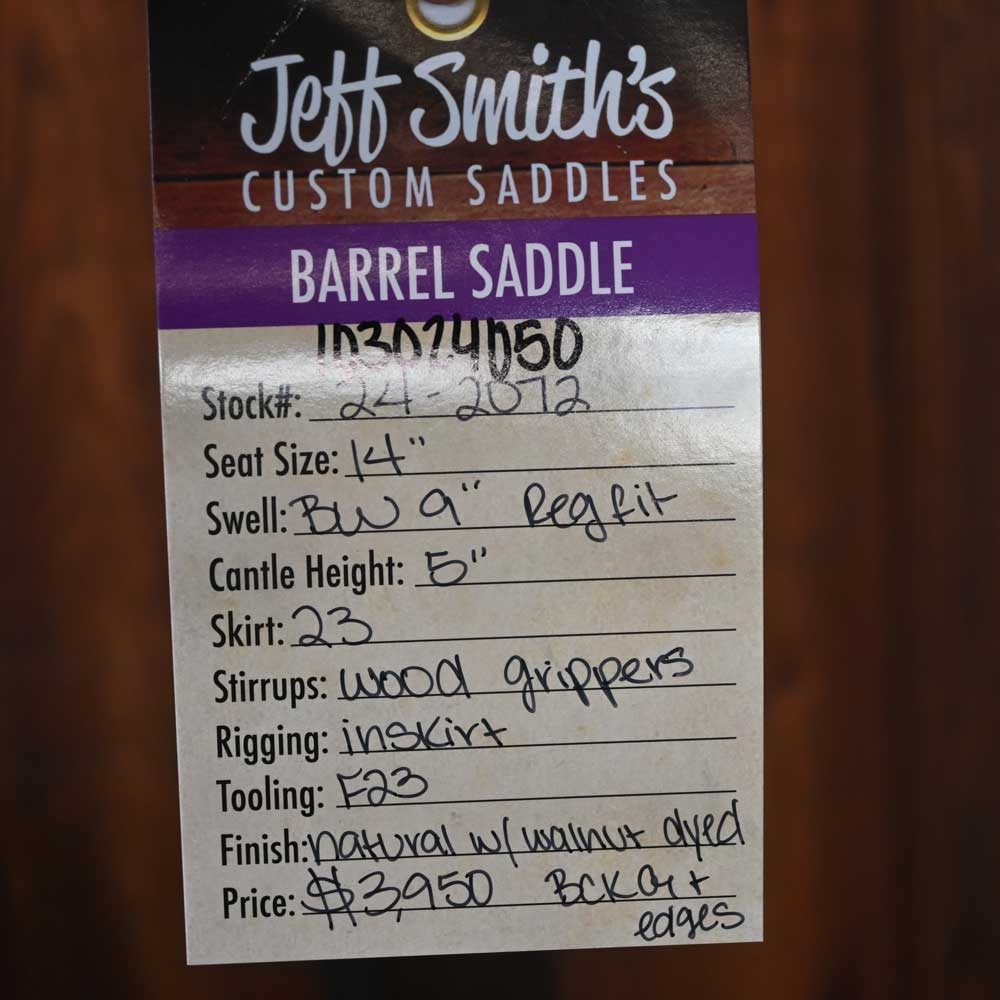 Jeff Smith's
CUSTOM SADDLES
BARREL SADDLE
103024050
Stock#: 24-2072
Seat Size: 14"
Swell: BW 9" Reg fit
Cantle Height: 5"
Skirt: 23
Stirrups: wood grippers
Rigging: inskirt
Tooling: F23
Finish: natural w/ walnut dyed
Price: $3,950
edges